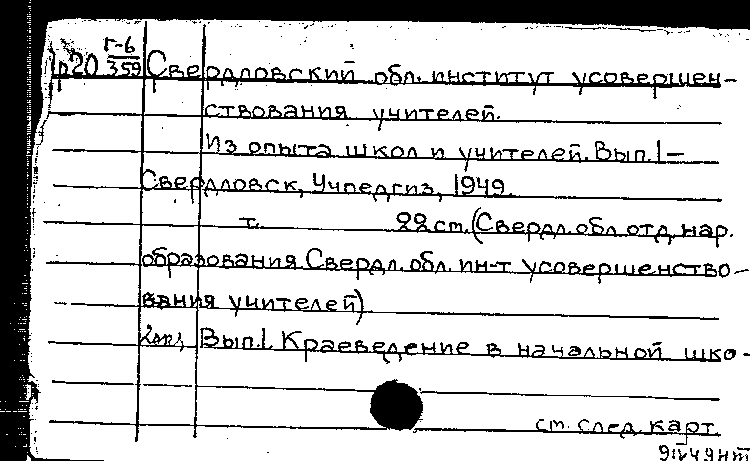 р20 Г-6/359 Свердловский обл. институт усовершен-
ствования учителей.
Из опыта школ и учителей. Вып. 1-
Свердловск, Учпедгиз, 1949.
т. 22 ст. (Свердл. обл. отд. нар.
образования Свердл. обл. ин-т усовершенство-
вания учителей)
2эпз, Вып. 1. Краеведение в начальной шко-
см. след. карт.